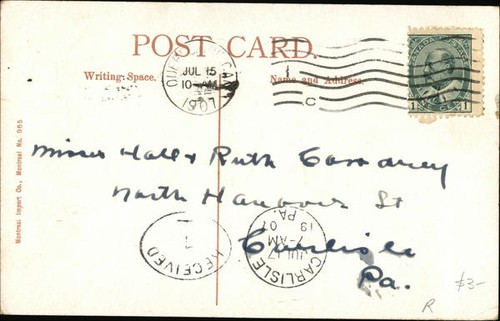 POST CARD.
Writing Space.
Name and Address.
QUEBEC CAN
JUL 15
10-AM
1907
C
CANADA POSTAGE
1 1
Montreal Import Co., Montreal No. 965
Misses Hall & Ruth
North Hanover St
Carlisle
Pa.
RECEIVED
1
CARLISLE
PA.
JUL 17
7-AM
19 07
$3-
R